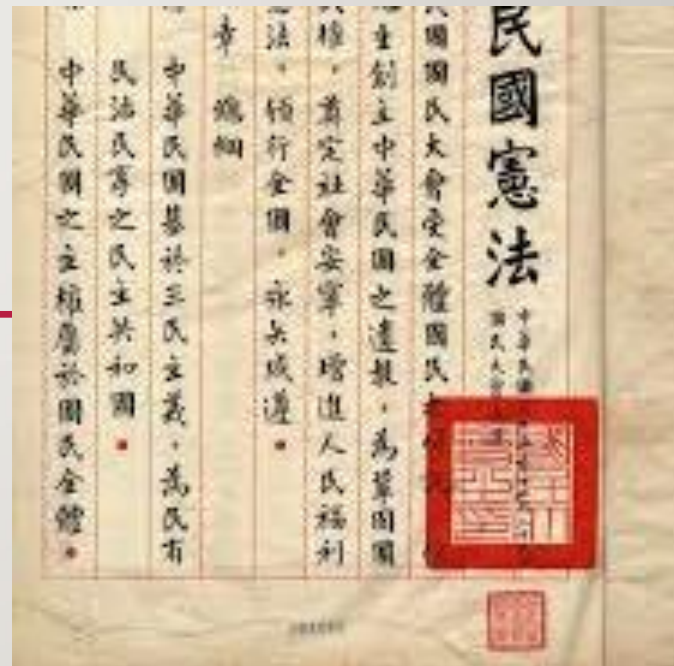 民國憲法
中華民國
國民大會
民國國民大會受全體國民
生創立中華民國之遺教，為鞏固國
民權，奠定社會安寧，增進人民福利
憲法，頒行全國，永矢咸遵。
章 總綱
中華民國基於三民主義，為民有
民治民享之民主共和國。
中華民國之主權屬於國民全體。